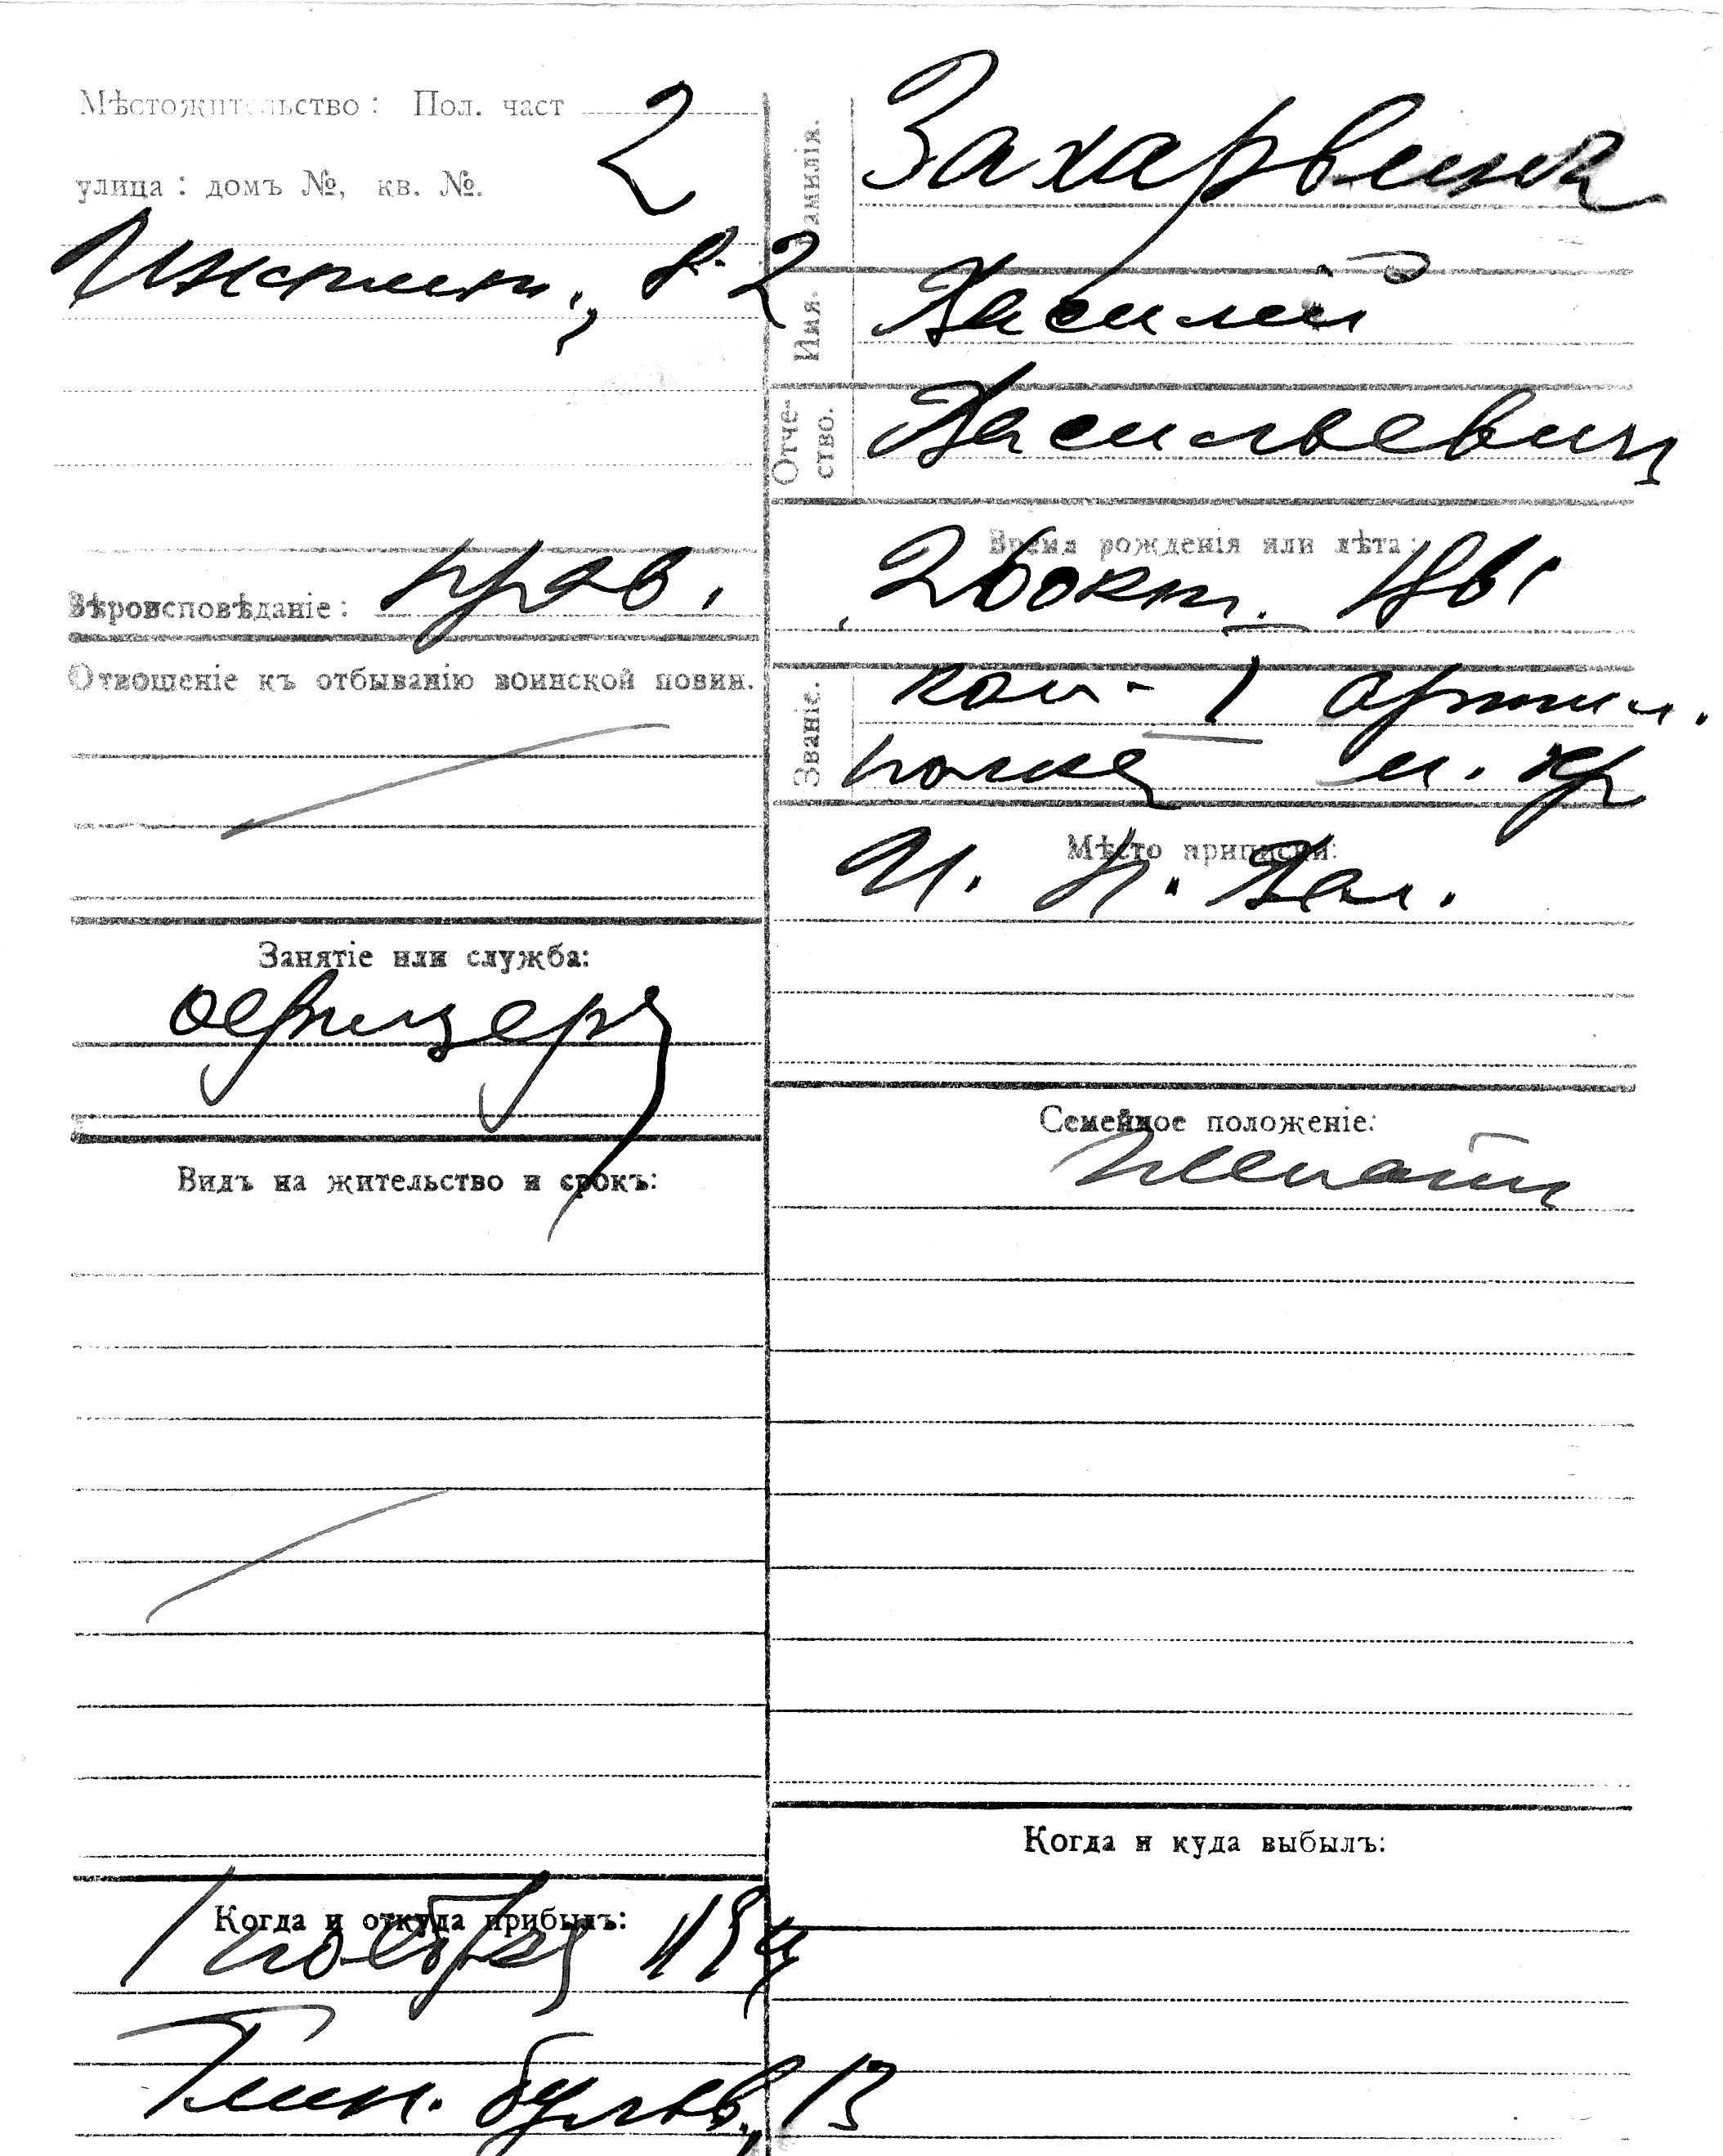 Мѣстожительство: Пол. част 2
улица: домъ №, кв. №.
Вѣроисповѣданіе: прав.
Отношеніе къ отбыванію воинской повин.
Занятіе или служба:
офицеръ
Видъ на жительство и срокъ:
Когда и откуда прибылъ:
1 ноября
бульв., 13
Фамилія.
Имя. Василій
Отче-
ство. Васильевич
Время рожденія или лѣта:
26 окт. 1881
Званіе. 1 артил.
полка
Мѣсто приписки:
Семейное положеніе:
женатъ
Когда и куда выбылъ: